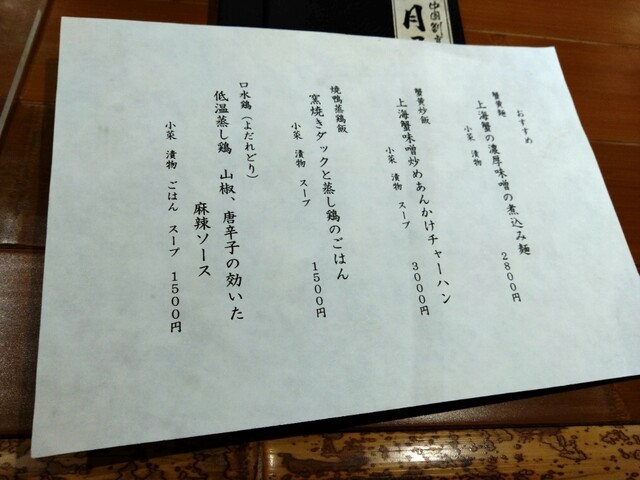 おすすめ
蟹黄麺
上海蟹の濃厚味噌の煮込み麺
小菜 漬物 2800円
蟹黄炒飯
上海蟹味噌炒めあんかけチャーハン
小菜 漬物 スープ 3000円
焼鴨蒸鶏飯
窯焼きダックと蒸し鶏のごはん
小菜 漬物 スープ 1500円
口水鶏(よだれどり)
低温蒸し鶏 山椒、唐辛子の効いた
麻辣ソース
小菜 漬物 ごはん スープ 1500円
中国割
月